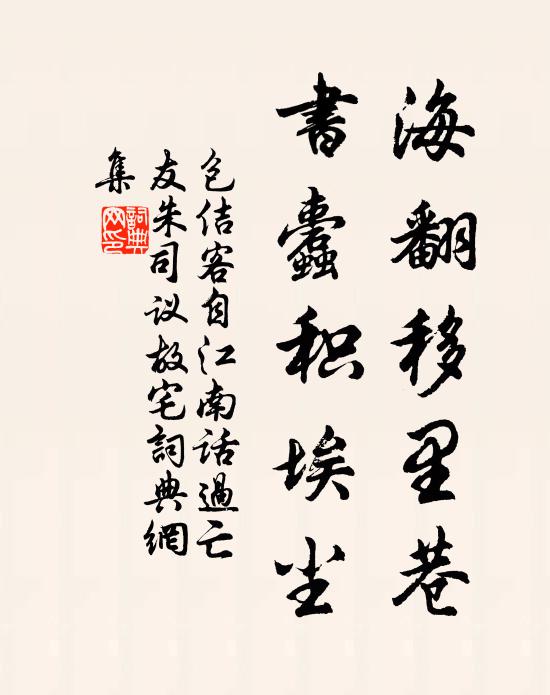 海翻移里巷
書蠹积埃尘
包佶客自江南话過亡
友朱司议故宅詞典網
集
詞典网印